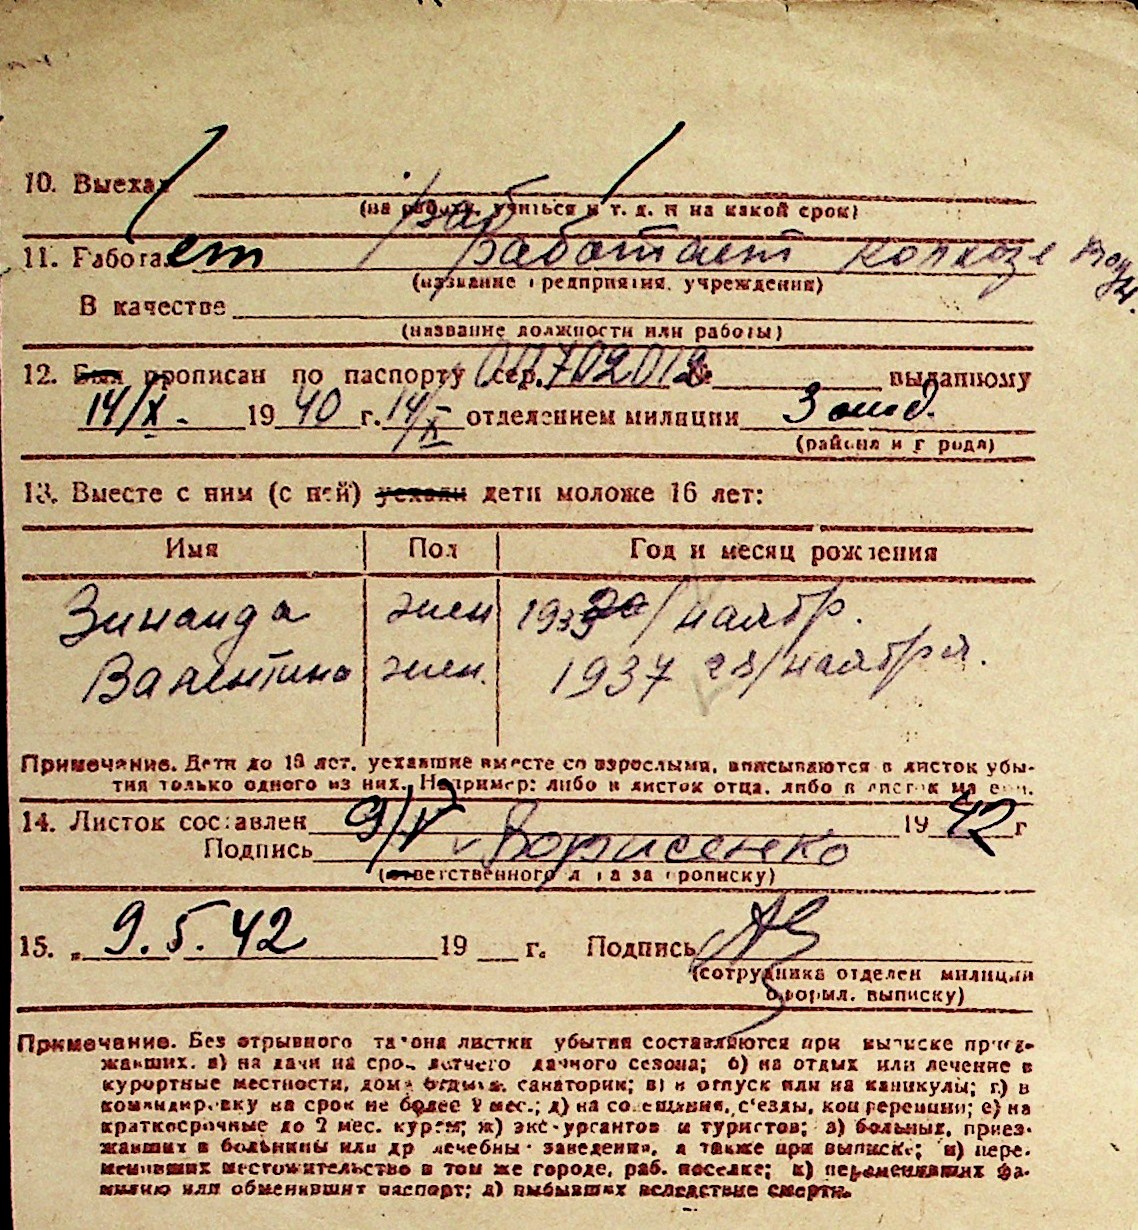 10. Выехал
(на работу, учиться и т. д. и на какой срок)
раб
11. Работает работает колхозе
(название предприятия, учреждения)
В качестве
(название должности или работы)
12. Был прописан по паспорту сер. 702012 № выданному
14/X - 1940 г. 14/X отделением милиции 3 отд.
(района и города)
13. Вместе с ним (с ней) уехали дети моложе 16 лет:
Имя Пол Год и месяц рождения
Зинаида жен 1933 20/ноябр.
Валентина жен. 1937 28/ноября.
Примечание. Дети до 16 лет, уехавшие вместе со взрослыми, вписываются в листок убы-
тия только одного из них. Например: либо в листок отца, либо в листок матери.
14. Листок составлен 9/V 1942 г
Подпись Борисенко
(ответственного лица за прописку)
15. „ 9.5.42 19 г. Подпись
(сотрудника отделен милиции
оформл. выписку)
Примечание. Без отрывного талона листки убытия составляются при выписке приез-
жавших. а) на дачи на срок летнего дачного сезона; б) на отдых или лечение в
курортные местности, дома отдыха, санатории; в) в отпуск или на каникулы; г) в
командировку на срок не более 2 мес.; д) на совещания, с'езды, конференции; е) на
краткосрочные до 2 мес. курсы; ж) экскурсантов и туристов; з) больных, приез-
жавших в больницы или др лечебные заведения, а также при выписке; и) пере-
менивших местожительство в том же городе, раб. поселке; к) переменивших фа-
милию или обменивших паспорт; л) выбывших вследствие смерти.